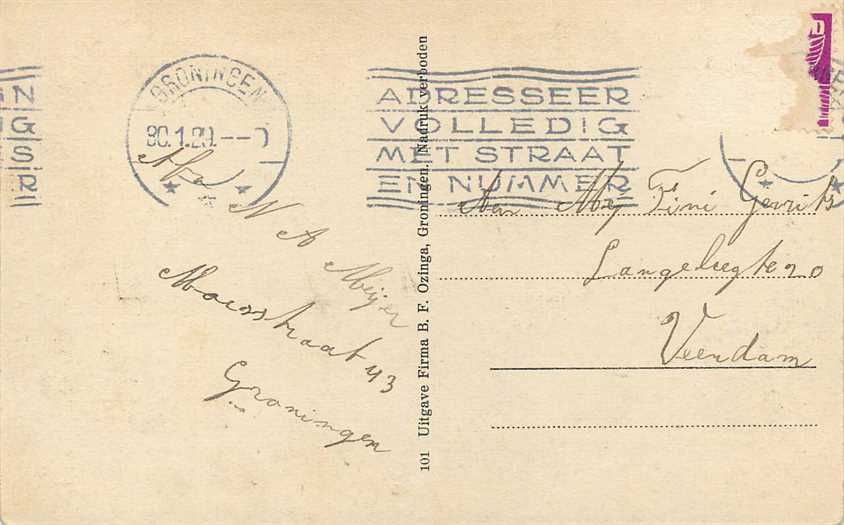 GRONINGEN
ADRESSEER
VOLLEDIG
MET STRAAT
EN NUMMER
N A Meijer
Moesstraat 43
Groningen
101 Uitgave Firma B. F. Ozinga, Groningen. Nadruk verboden
Aan Mej Tini Gerrits
Langeleegte 20
Veendam